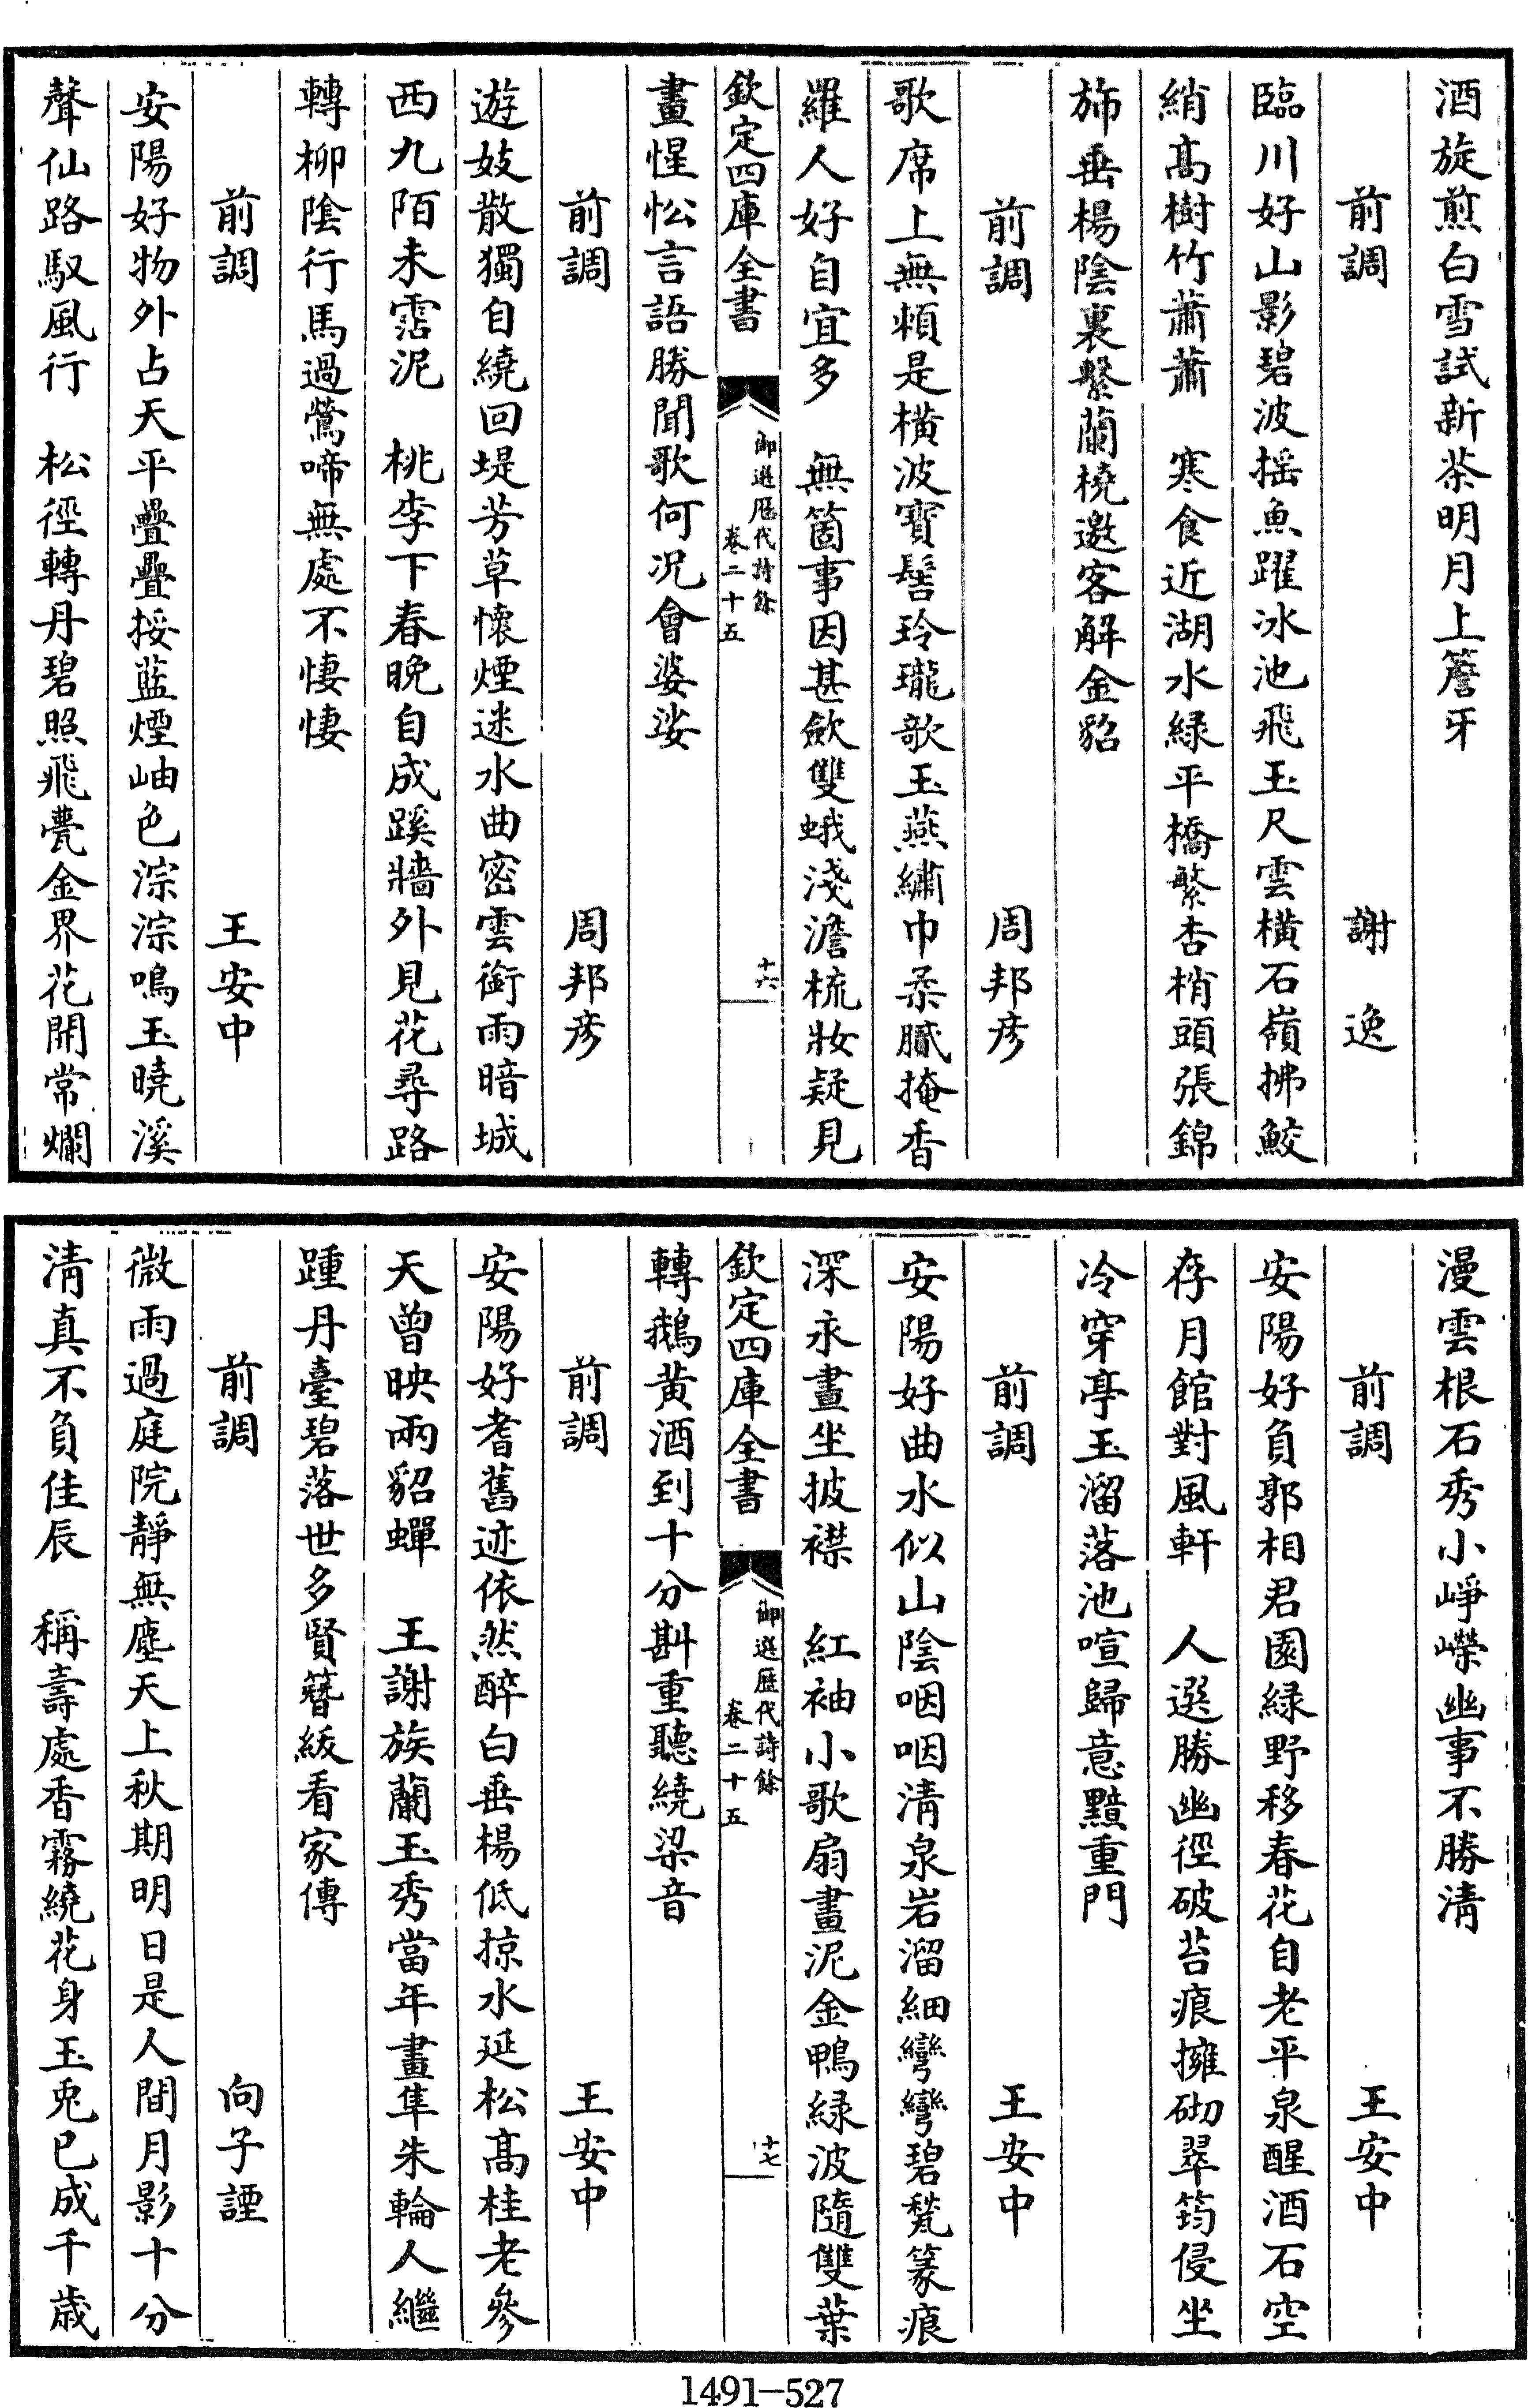 酒旋煎白雪試新茶明月上簷牙
前調　謝　逸
臨川好山影碧波揺魚躍冰池飛玉尺雲横石嶺拂鮫
綃髙樹竹蕭蕭　寒食近湖水緑平橋繁杏梢頭張錦
斾垂楊陰裏繫蘭橈邀客解金貂
前調　周邦彦
歌席上無頼是横波寳髻玲瓏欹玉燕繡巾柔膩掩香
羅人好自宜多　無箇事因甚斂雙蛾淺澹梳妝疑見
欽定四庫全書
御選歴代詩餘
卷二十五
十六
畫惺忪言語勝聞歌何况會婆娑
前調　周邦彦
遊妓散獨自繞回堤芳草懷煙迷水曲密雲銜雨暗城
西九陌未霑泥　桃李下春晚自成蹊牆外見花尋路
轉柳陰行馬過鶯啼無處不悽悽
前調　王安中
安陽好物外占天平疊疊挼藍煙岫色淙淙鳴玉曉溪
聲仙路馭風行　松徑轉丹碧照飛甍金界花開常爛
漫雲根石秀小崢嶸幽事不勝清
前調　王安中
安陽好負郭相君園緑野移春花自老平泉醒酒石空
存月館對風軒　人選勝幽徑破苔痕擁砌翠筠侵坐
冷穿亭玉溜落池喧歸意黯重門
前調　王安中
安陽好曲水似山陰咽咽清泉岩溜細彎彎碧甃篆痕
深永晝坐披襟　紅袖小歌扇畫泥金鴨緑波隨雙葉
欽定四庫全書
御選歴代詩餘
卷二十五
十七
轉鵝黄酒到十分斟重聽繞梁音
前調　王安中
安陽好耆舊迹依然醉白垂楊低掠水延松髙桂老參
天曾映兩貂蟬　王謝族蘭玉秀當年畫隼朱輪人繼
踵丹臺碧落世多賢簪紱看家傳
前調　向子諲
微雨過庭院靜無塵天上秋期明日是人間月影十分
清真不負佳辰　稱壽處香霧繞花身玉兎已成千歳
1491-527